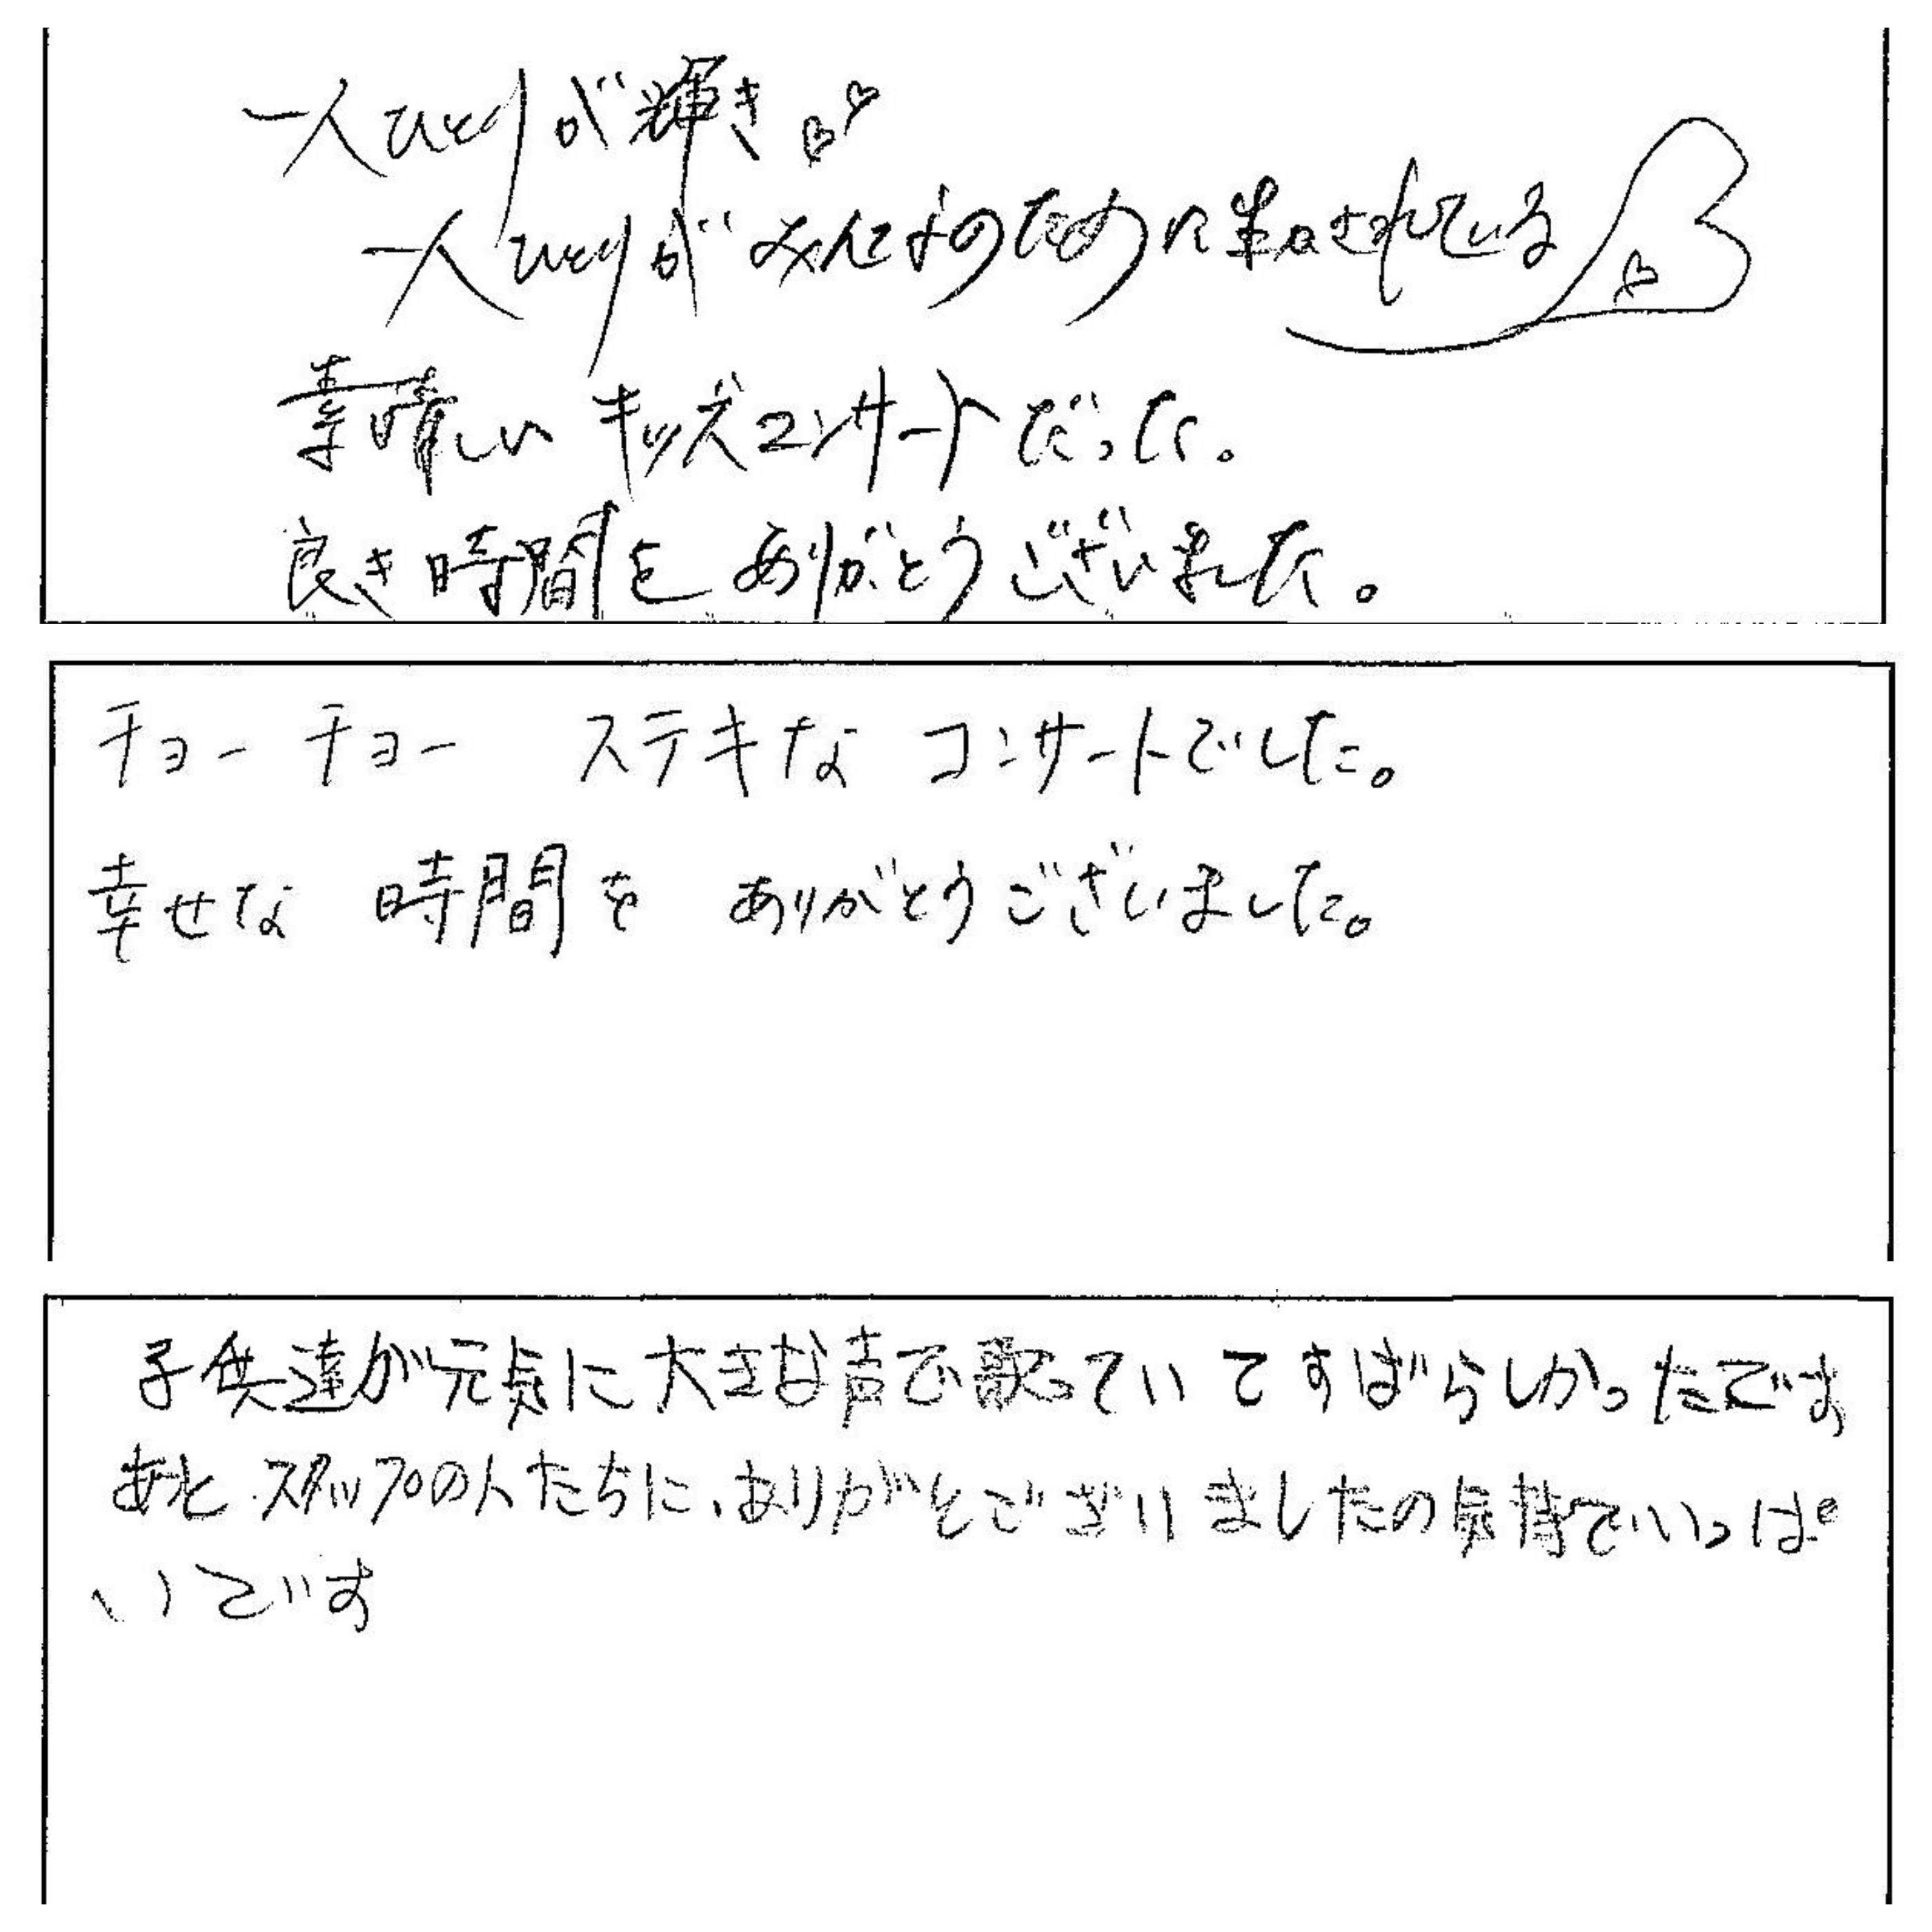 一人ひとりが輝き
一人ひとりがみんなのために生かされている
素晴しいキッズコンサートだった。
良き時間をありがとうございました。
チョーチョー ステキな コンサートでした。
幸せな 時間を ありがとうございました。
子供達が元気に大きな声で歌っていてすばらしかったです
あと、スタップの人たちに、ありがとございましたの気持でいっぱ
いです